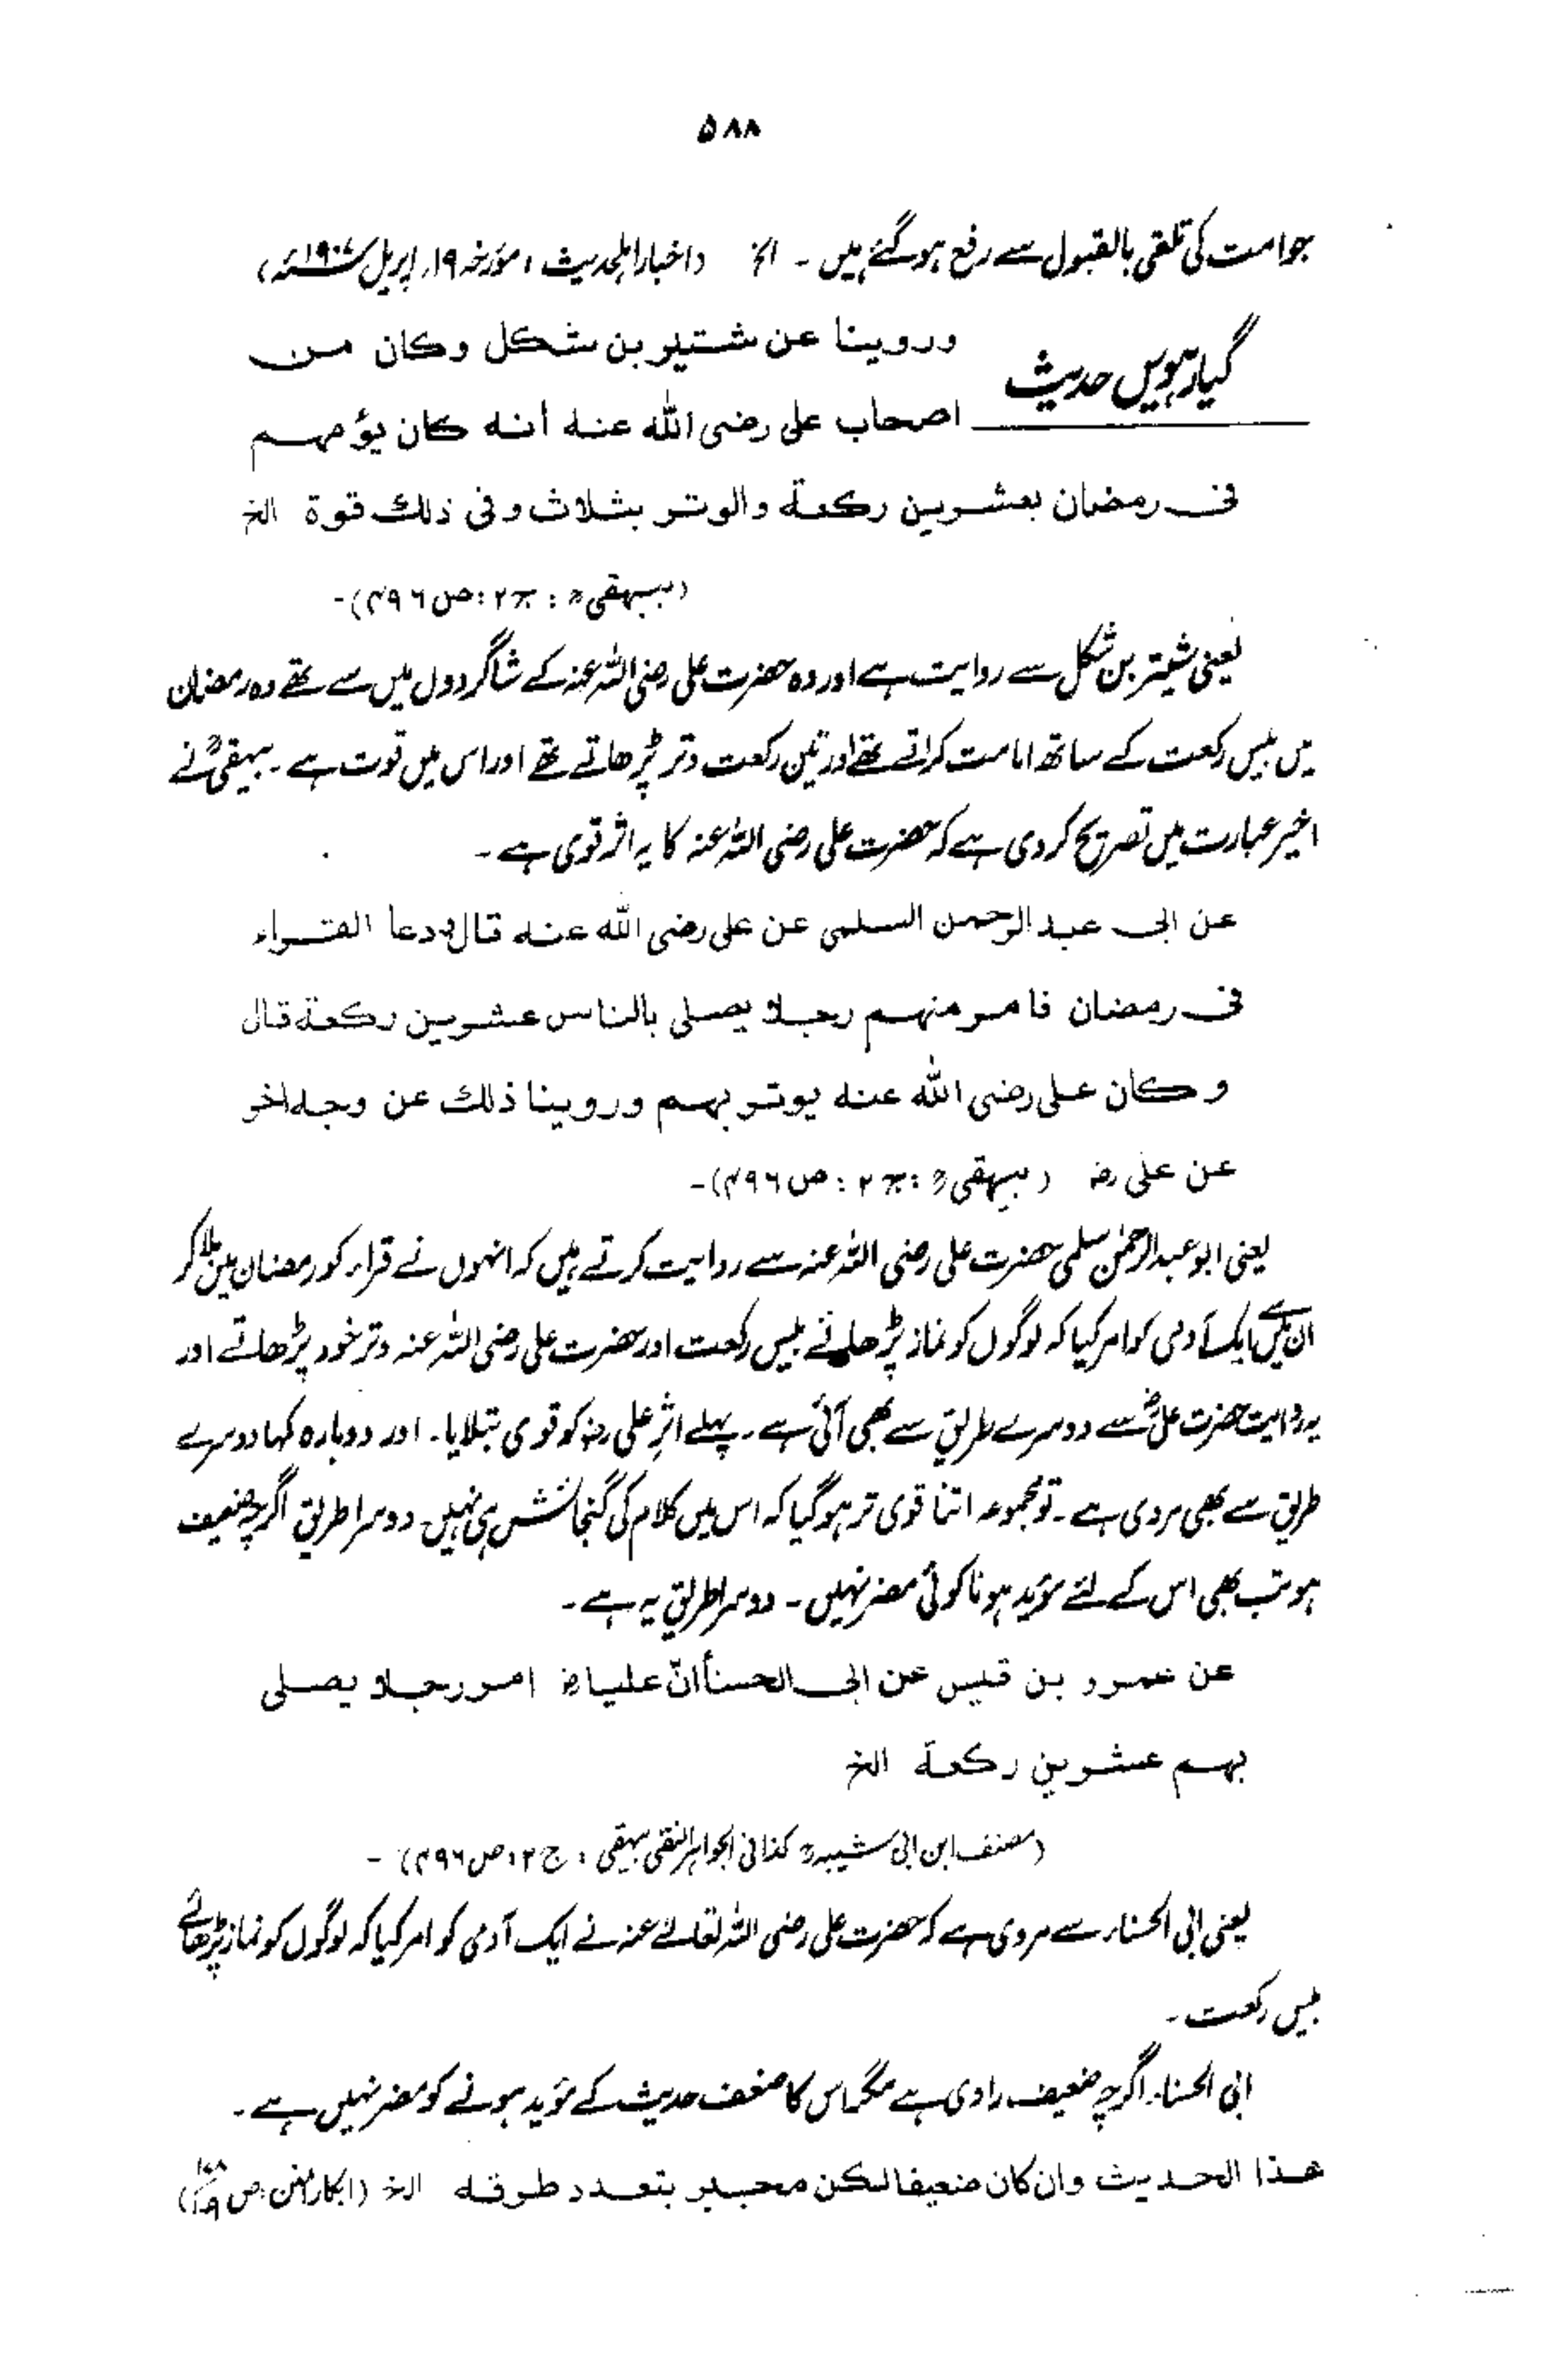 ۵۸۸
جو امت کی تلقی بالقبول سے رفع ہو گئے ہیں ۔ الخ (اخبار اہلحدیث ، مؤرخہ ۱۹ر اپریل ۱۹۰۷ئہ)
گیارہویں حدیث
وروينا عن شتير بن شكل وكان من
اصحاب على رضى الله عنه أنه كان يؤمهم
فى رمضان بعشرين ركعة والوتر بثلاث وفى ذلك قوة الخ
(بیہقیؒ : ج ۲ : ص ۴۹۶)-
یعنی شیتر بن شکل سے روایت ہے اور وہ حضرت علی رضی اللہ عنہ کے شاگردوں میں سے تھے وہ رمضان
میں بیس رکعت کے ساتھ امامت کراتے تھے اور تین رکعت وتر پڑھاتے تھے اور اس میں قوت ہے ۔ بیہقیؒ نے
اخیر عبارت میں تصریح کر دی ہے کہ حضرت علی رضی اللہ عنہ کا یہ اثر قوی ہے ۔
عن ابى عبد الرحمن السلمى عن على رضى الله عنه قال دعا القراء
فى رمضان فامر منهم رجلا يصلى بالناس عشرين ركعة قال
وكان على رضى الله عنه يوتر بهم وروينا ذلك عن وجه اخر
عن على رضـ (بیہقیؒ : ج ۲ : ص ۴۹۶)-
یعنی ابو عبدالرحمٰن سلمی حضرت علی رضی اللہ عنہ سے روایت کرتے ہیں کہ انہوں نے قراء کو رمضان میں بلا کر
ان میں سے ایک آدمی کو امر کیا کہ لوگوں کو نماز پڑھائے بیس رکعت اور حضرت علی رضی اللہ عنہ وتر خود پڑھاتے اور
یہ روایت حضرت علیؓ سے دوسرے طریق سے بھی آئی ہے ۔ پہلے اثرِ علی رضـ کو قوی بتلایا ۔ اور دوبارہ کہا دوسرے
طریق سے بھی مروی ہے ۔ تو مجموعہ اتنا قوی تر ہو گیا کہ اس میں کلام کی گنجائش ہی نہیں ۔ دوسرا طریق اگرچہ ضعیف
ہو تب بھی اس کے لئے مؤید ہونا کوئی مضر نہیں ۔ دوسرا طریق یہ ہے ۔
عن عمرو بن قيس عن ابى الحسناأنّ عليا رضـ امر رجلا يصلى
بهم عشرين ركعة الخ
(مصنف ابن ابی شیبہؒ کذا فی الجواہر النقی بیہقی : ج ۲ : ص ۴۹۶) -
یعنی ابی الحسناء سے مروی ہے کہ حضرت علی رضی اللہ تعالےٰ عنہ نے ایک آدمی کو امر کیا کہ لوگوں کو نماز پڑھائے
بیس رکعت ۔
ابی الحسناء اگرچہ ضعیف راوی ہے مگر اس کا ضعف حدیث کے مؤید ہونے کو مضر نہیں ہے ۔
هذا الحديث وان كان ضعيفا لكن منجبر بتعدد طرقه الخ (ابکار المنن ص